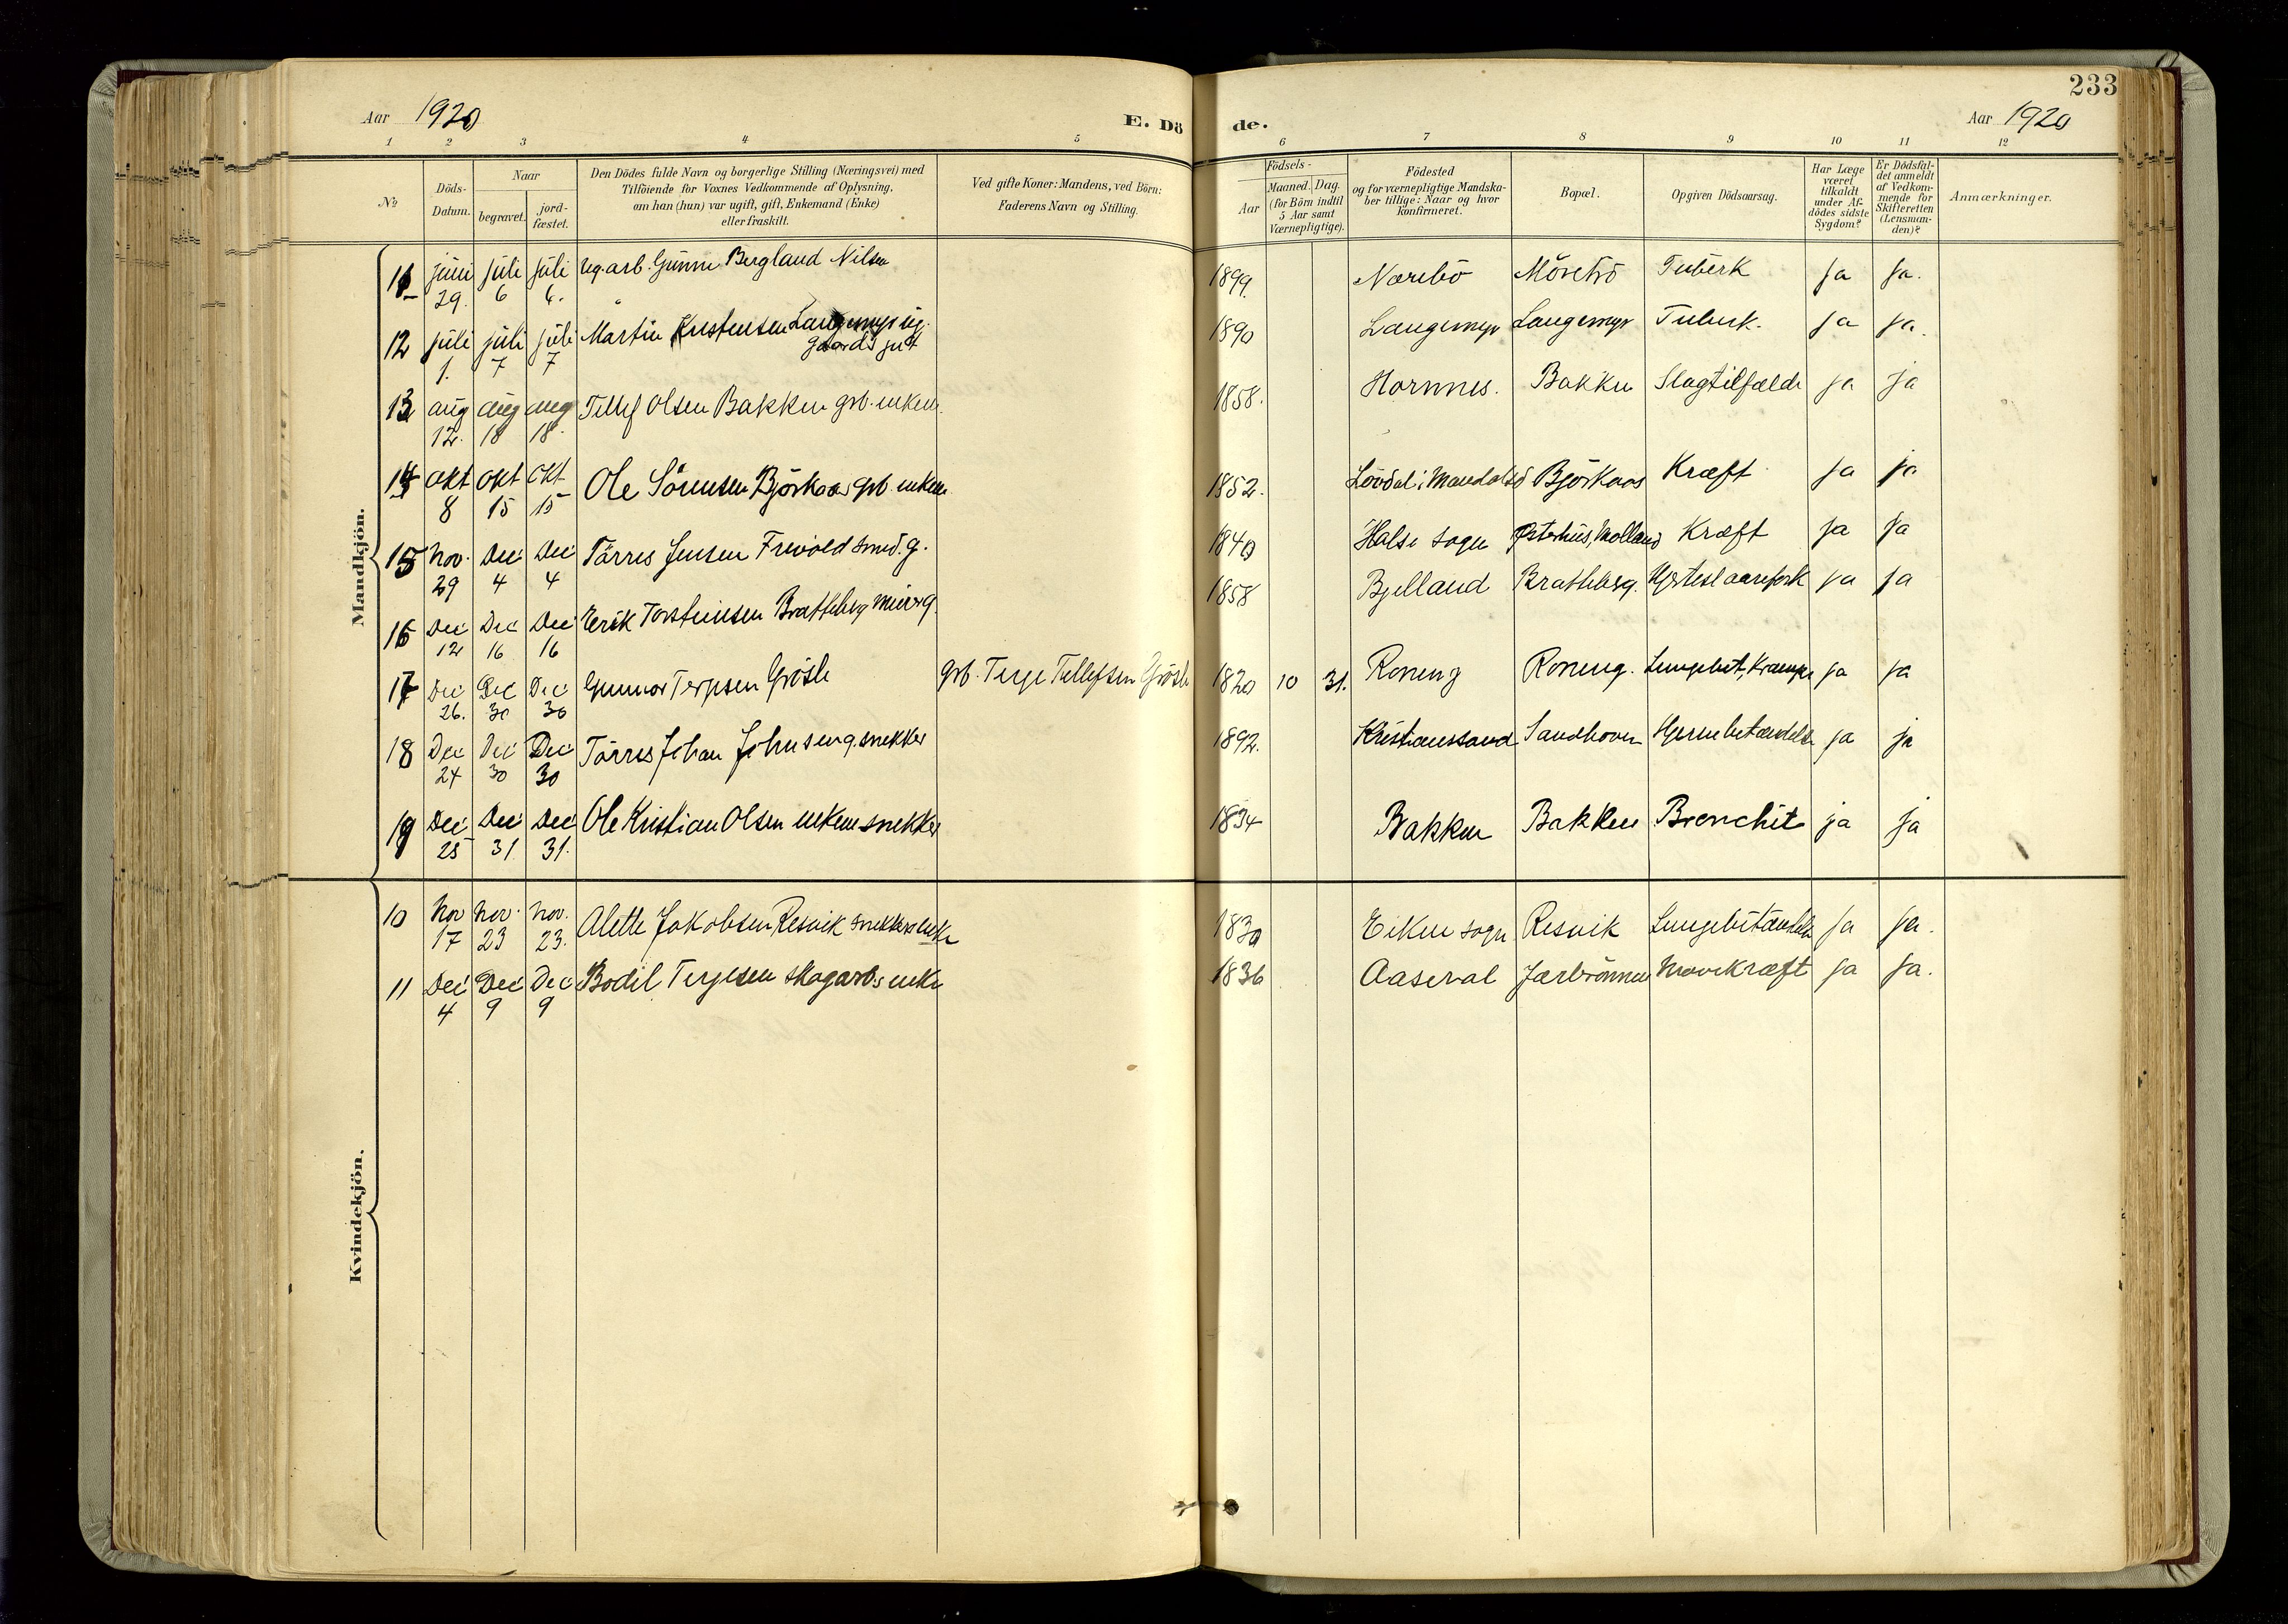 233
Aar 1920 E. Dö de. Aar 1920
1 2 3 4 5 6 7 8 9 10 11 12
No
Döds-Datum.
Naar
begravet.
jord-fæstet.
Den Dödes fulde Navn og borgerlige Stilling (Næringsvei) med
Tilföiende for Voxnes Vedkommende af Oplysning,
om han (hun) var ugift, gift, Enkemand (Enke)
eller fraskilt.
Ved gifte Koner: Mandens, ved Börn:
Faderens Navn og Stilling.
Födsels-
Aar
Maaned. Dag.
(for Börn indtil
5 Aar samt
Værnepligtige).
Födested
og for værnepligtige Mandska-
ber tillige: Naar og hvor
konfirmeret.
Bopæl.
Opgiven Dödsaarsag.
Har Læge
været
tilkaldt
under Af-
dödes sidste
Sygdom?
Er Dödsfal-
det anmeldt
af Vedkom-
mende for
Skifteretten
(Lensman-
den)?
Anmærkninger.
Mandkjön.
11 juni 29. juli 6 juli 6. ug. arb. Gunne Bergland Nilsen 1899. Nærebö Möretrö Tuberk ja ja.
12 juli 1. juli 7 juli 7 Martin Kristensen Laugemyr ug. 1890 Laugemyr Laugemyr Tuberk. ja ja.
13 aug 12. aug 18 aug 18. Tellef Olsen Bakken grb. enkem. 1858. Hornnes. Bakken Slagtilfælde ja ja
14 okt 8 okt 15 okt 15 Ole Sörensen Björkaas grb. enkem. 1852. Björkaas Kræft ja ja
15 Nov. 29 Dec 4 Dec 4 Törres Jensen Frivold smed. g. 1840 Halse sogn Østerhus, Molland Kræft ja ja
16 Dec 12 Dec 16 Dec 16 Erik Torsteinsen Bratteberg murer g. 1858 Bjelland Bratteberg. ja ja
17 Dec 26. Dec 30 Dec 30 Gunnar Terjesen Grösle grb. Terje Tellefsen Grösle 1820 10 31. Roneng Roneng. Lungebet, Krampe ja ja
18 Dec 24 Dec 30 Dec 30 Törres Johan Johnsen g. snekker 1892. Kristianssand Sandhaven Hjernebetændelse ja ja
19 Dec 25 Dec 31 Dec 31. Ole Kristian Olsen enkem snekker 1834 Bakken Bakken Bronchit ja ja
Kvindekjön.
10 Nov 17 Nov. 23 Nov. 23. Alette Jakobsen Resvik snekkers enke 1830 Eiken sogn Resvik Lungebetændelse ja ja.
11 Dec 4 Dec 9 Dec 9 Bodil Terjesen skogarbs enke 1836 Aaseral Jærbrönnen Mavekræft ja ja.